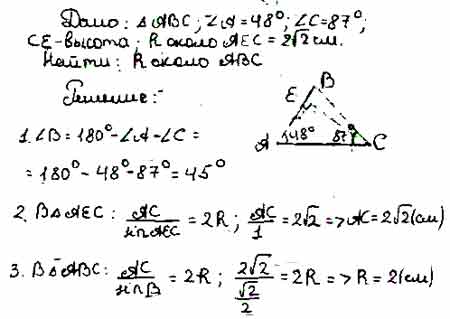 Дано: △ABC; ∠A=48°; ∠C=87°;
CE-высота; R около AEC = 2√2 см.
Найти: R около ABC
Решение:
1. ∠B = 180° - ∠A - ∠C =
= 180° - 48° - 87° = 45°
B
E
A 48° 87° C
2. В △AEC: AC/sin AEC = 2R; AC/1 = 2√2 => AC = 2√2 (см)
3. В △ABC: AC/sin B = 2R; 2√2/(√2/2) = 2R => R = 2 (см)